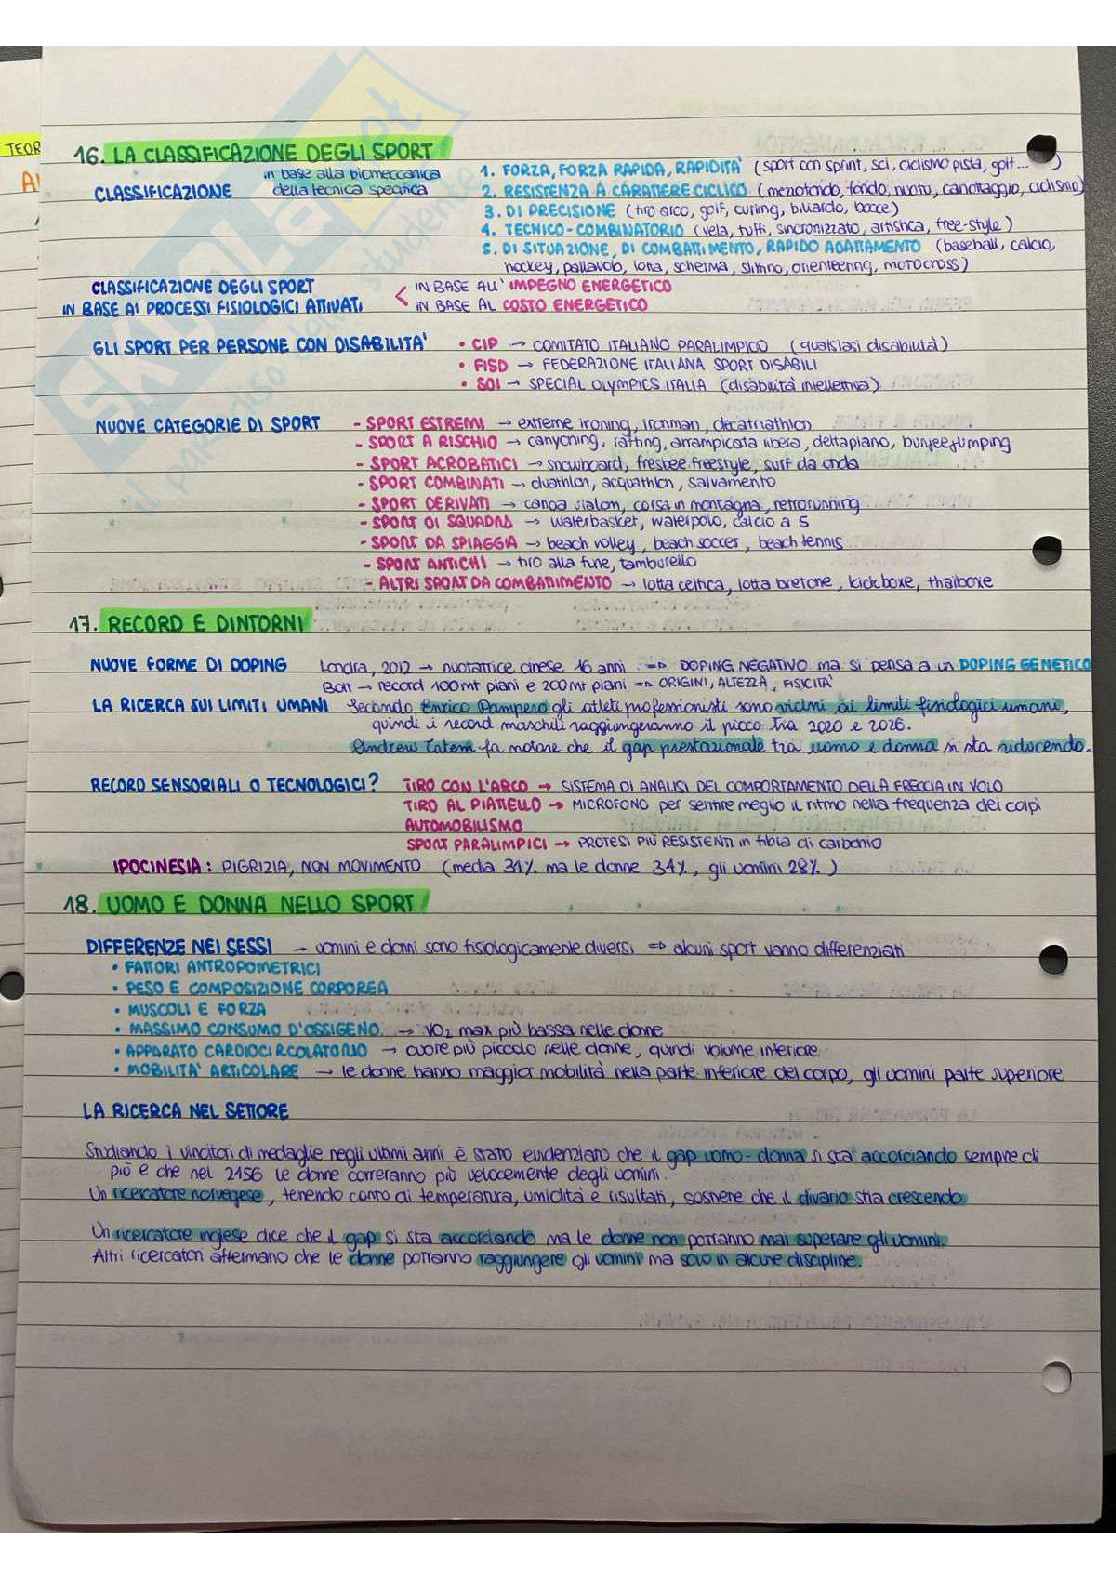 TEOR
16. LA CLASSIFICAZIONE DEGLI SPORT
CLASSIFICAZIONE in base alla biomeccanica della tecnica specifica
1. FORZA, FORZA RAPIDA, RAPIDITA' (sport con sprint, sci, ciclismo pista, golf...)
2. RESISTENZA A CARATTERE CICLICO (mezzofondo, fondo, nuoto, canottaggio, ciclismo)
3. DI PRECISIONE (tiro arco, golf, curing, biliardo, bocce)
4. TECNICO-COMBINATORIO (vela, tuffi, sincronizzato, artistica, free-style)
5. DI SITUAZIONE, DI COMBATTIMENTO, RAPIDO ADATTAMENTO (baseball, calcio,
hockey, pallavolo, lotta, scherma, slittino, orienteering, motocross)
CLASSIFICAZIONE DEGLI SPORT
IN BASE AI PROCESSI FISIOLOGICI ATTIVATI
< IN BASE ALL' IMPEGNO ENERGETICO
IN BASE AL COSTO ENERGETICO
GLI SPORT PER PERSONE CON DISABILITA' • CIP → COMITATO ITALIANO PARALIMPICO (qualsiasi disabilità)
• FISD → FEDERAZIONE ITALIANA SPORT DISABILI
• SOI → SPECIAL OLYMPICS ITALIA (disabilità intellettiva)
NUOVE CATEGORIE DI SPORT - SPORT ESTREMI → extreme ironing, ironman, decatriathlon
- SPORT A RISCHIO → canyoning, rafting, arrampicata libera, deltaplano, bunjee jumping
- SPORT ACROBATICI → snowboard, fresbee freestyle, surf da onda
- SPORT COMBINATI → duathlon, acquathlon, salvamento
- SPORT DERIVATI → canoa slalom, corsa in montagna, retrorunning
- SPORT DI SQUADRA → waterbasket, waterpolo, calcio a 5
- SPORT DA SPIAGGIA → beach volley, beach soccer, beach tennis
- SPORT ANTICHI → tiro alla fune, tamburello
- ALTRI SPORT DA COMBATTIMENTO → lotta celtica, lotta bretone, kickboxe, thaiboxe
17. RECORD E DINTORNI
NUOVE FORME DI DOPING Londra, 2012 → nuotatrice cinese 16 anni ⇒ DOPING NEGATIVO ma si pensa a un DOPING GENETICO
Bolt → record 100mt piani e 200mt piani → ORIGINI, ALTEZZA, FISICITA'
LA RICERCA SUI LIMITI UMANI Secondo Enrico Pampero gli atleti professionisti sono vicini ai limiti fisiologici umani,
quindi i record maschili raggiungeranno il picco tra 2020 e 2026.
Andrew Tatem fa notare che il gap prestazionale tra uomo e donna si sta riducendo.
RECORD SENSORIALI O TECNOLOGICI? TIRO CON L'ARCO → SISTEMA DI ANALISI DEL COMPORTAMENTO DELLA FRECCIA IN VOLO
TIRO AL PIATTELLO → MICROFONO per sentire meglio il ritmo nella frequenza dei colpi
AUTOMOBILISMO
SPORT PARALIMPICI → PROTESI PIÙ RESISTENTI in fibra di carbonio
IPOCINESIA: PIGRIZIA, NON MOVIMENTO (media 31% ma le donne 34%, gli uomini 28%)
18. UOMO E DONNA NELLO SPORT
DIFFERENZE NEI SESSI → uomini e donni sono fisiologicamente diversi ⇒ alcuni sport vanno differenziati
• FATTORI ANTROPOMETRICI
• PESO E COMPOSIZIONE CORPOREA
• MUSCOLI E FORZA
• MASSIMO CONSUMO D'OSSIGENO → VO2 max più bassa nelle donne
• APPARATO CARDIOCIRCOLATORIO → cuore più piccolo nelle donne, quindi volume inferiore
• MOBILITA' ARTICOLARE → le donne hanno maggior mobilità nella parte inferiore del corpo, gli uomini parte superiore
LA RICERCA NEL SETTORE
Studiando i vincitori di medaglie negli ultimi anni è stato evidenziato che il gap uomo-donna si sta accorciando sempre di
più e che nel 2156 le donne correranno più velocemente degli uomini.
Un ricercatore norvegese, tenendo conto di temperatura, umidità e risultati, sostiene che il divario stia crescendo
Un ricercatore inglese dice che il gap si sta accorciando ma le donne non potranno mai superare gli uomini.
Altri ricercatori affermano che le donne potranno raggiungere gli uomini ma solo in alcune discipline.